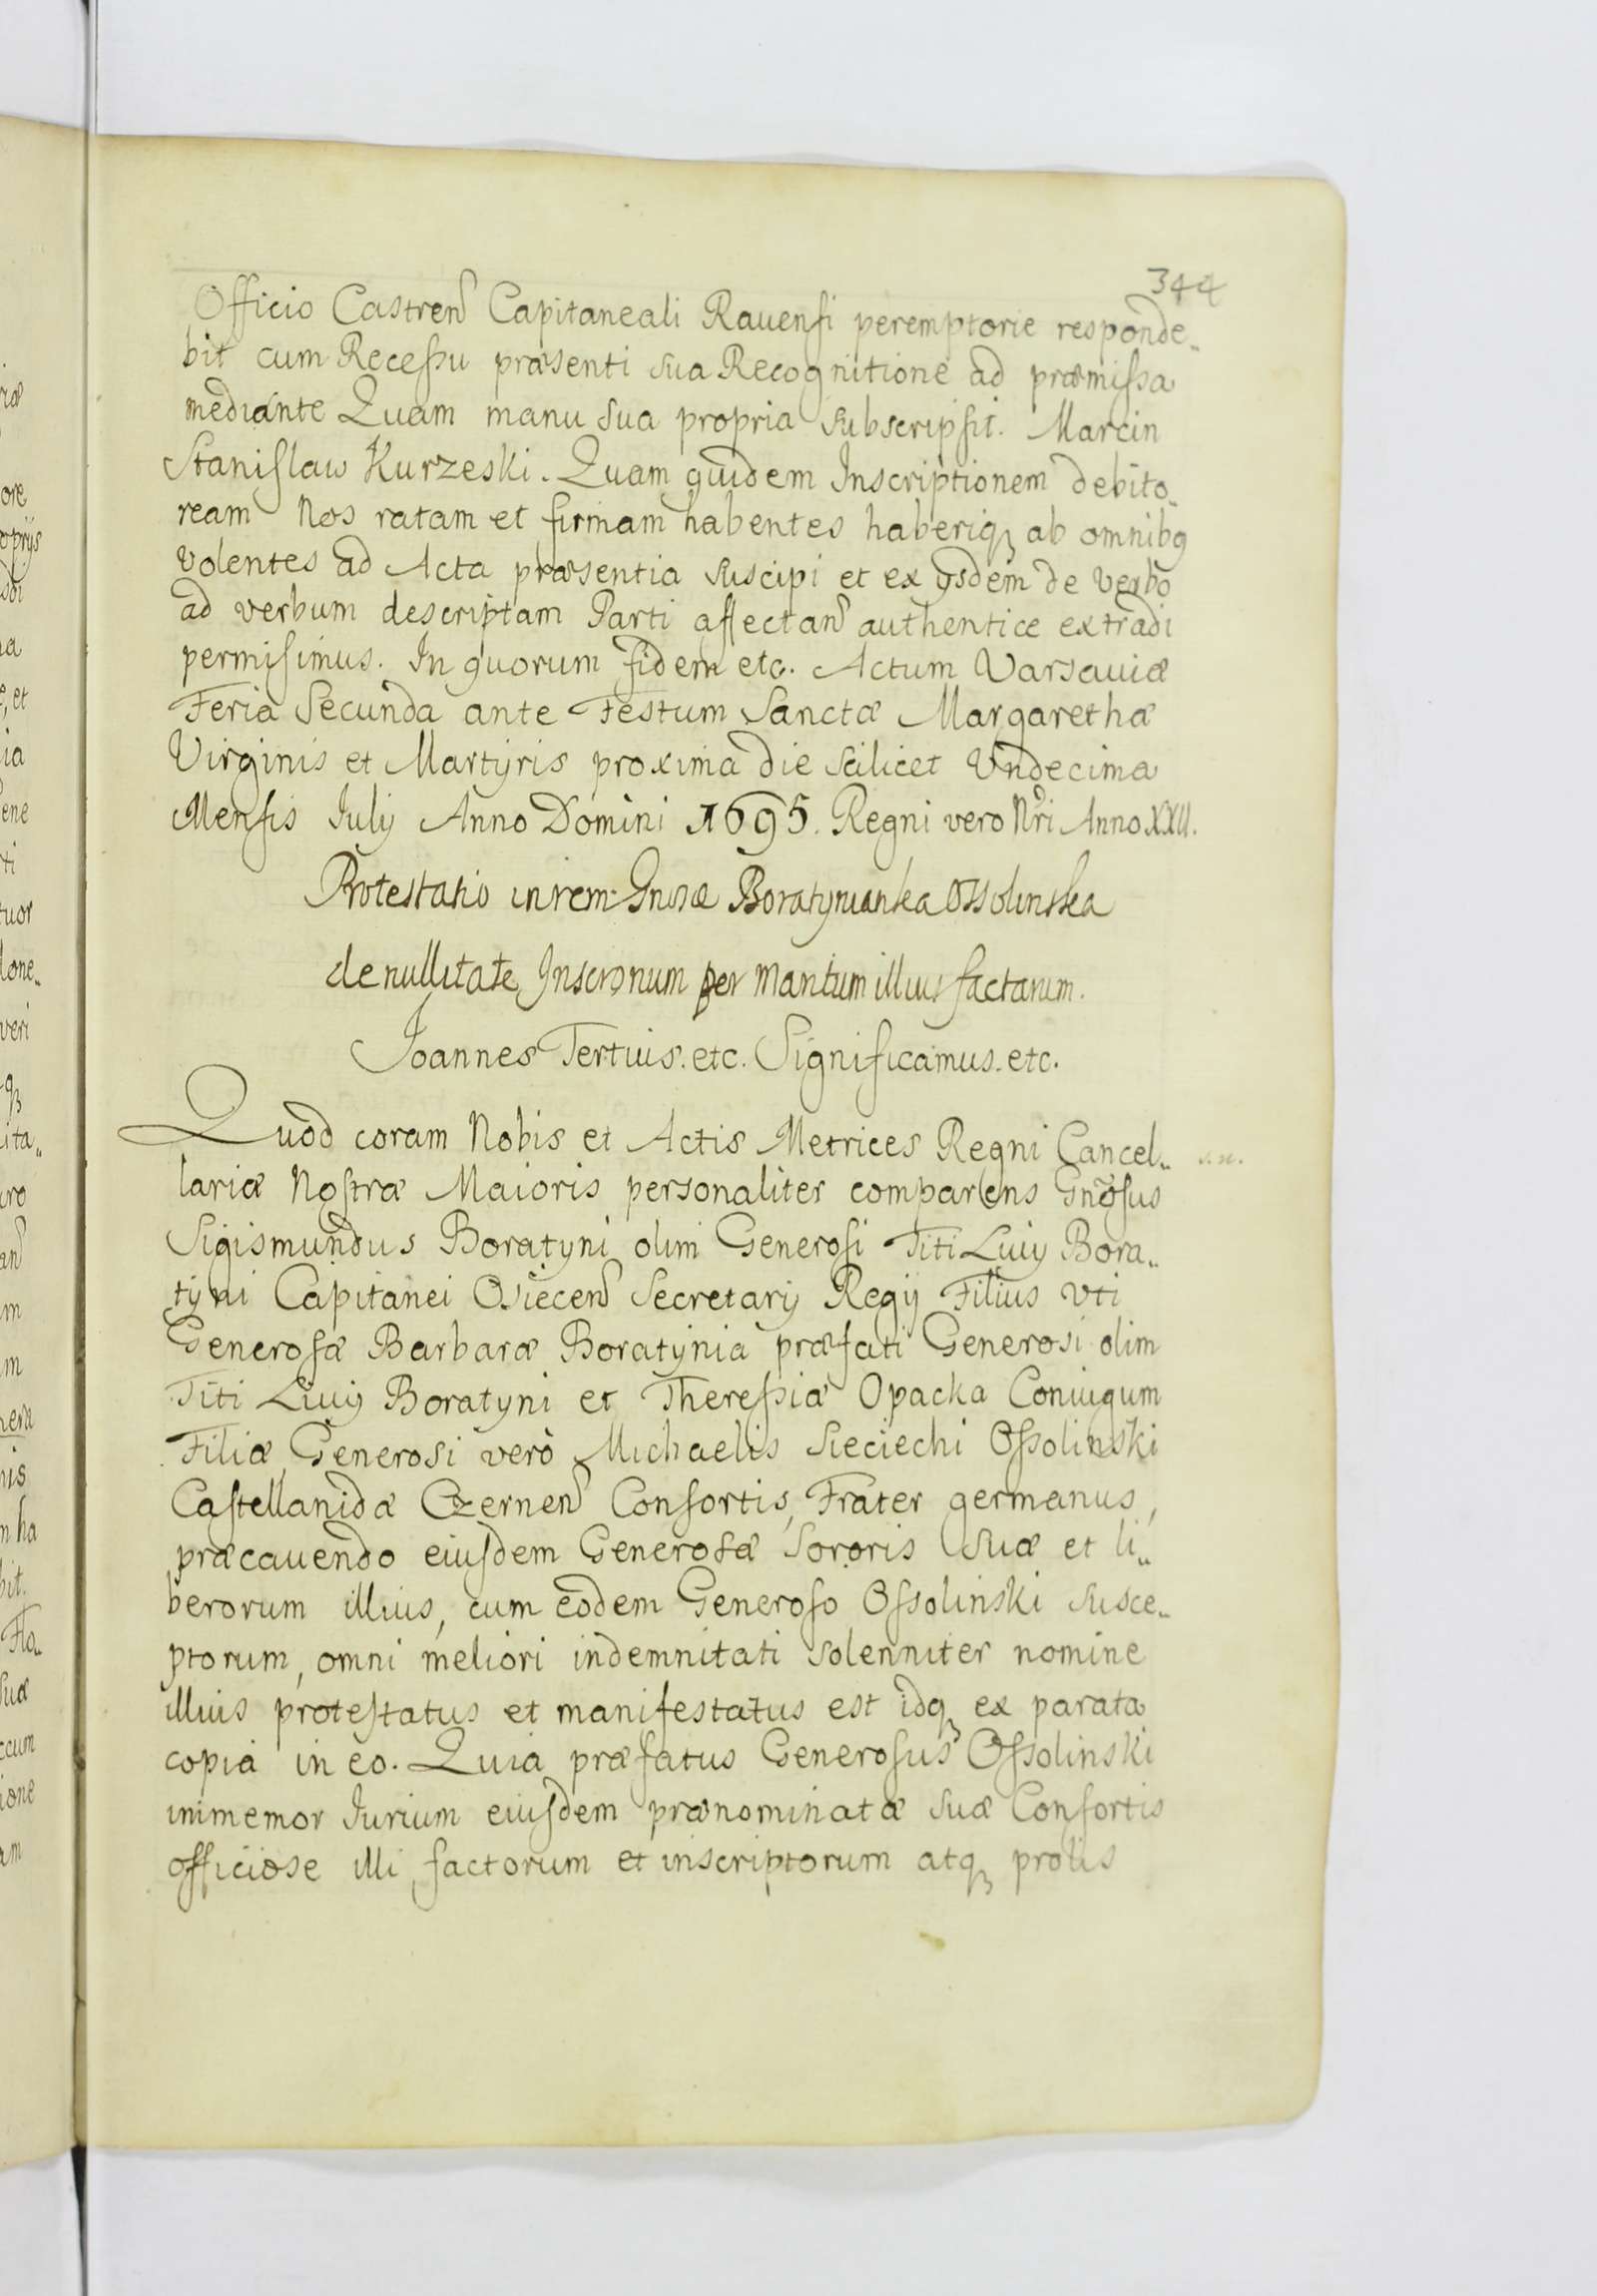 344
Officio Castren Capitaneali Rauensi peremptorie responde„
bit cum Recessu præsenti sua Recognitione ad præmissa
mediante Quam manu sua propria subscripsit. Marcin
Stanislaw Kurzeski. Quam quidem Inscriptionem debito„
ream Nos ratam et firmam habentes haberiq3 ab omnibq
volentes ad Acta præsentia suscipi et ex ysdem de verbo
ad verbum descriptam Parti affectan authentice extradi
permisimus. In quorum fidem etc. Actum Varsauiæ
Feria Secunda ante Festum Sanctæ Margarethæ
Virginis et Martyris proxima die scilicet Vndecima
Mensis July Anno Domini 1695. Regni vero Nri Anno XXII.
Protestatio in rem Gnosæ Boratynianka Ossolinska
de nullitate Inscronum per Maritum illius factarum.
Joannes Tertius. etc. Significamus. etc.
Quod coram Nobis et Actis Metrices Regni Cancel„
lariæ Nostræ Maioris personaliter comparens Gnosus
Sigismundus Boratyni olim Generosi Titi Liuij Bora„
tyni Capitanei Osiecen Secretarij Regij Filius vti
Generosæ Barbaræ Boratynia præfati Generosi olim
Titi Liuij Boratyni et Theressiæ Opacka Coniugum
Filiæ Generosi verò Michaelis Sieciechi Ossolinski
Castellanidæ Czernen Consortis, Frater germanus,
præcauendo eiusdem Generosæ Sororis suæ et li„
berorum illius, cum eodem Generoso Ossolinski susce„
ptorum, omni meliori indemnitati solenniter nomine
illius protestatus et manifestatus est idq3 ex parata
copia in eo. Quia præfatus Generosus Ossolinski
immemor Iurium eiusdem prænominatæ suæ Consortis
officiose illi factorum et inscriptorum atq3 prolis